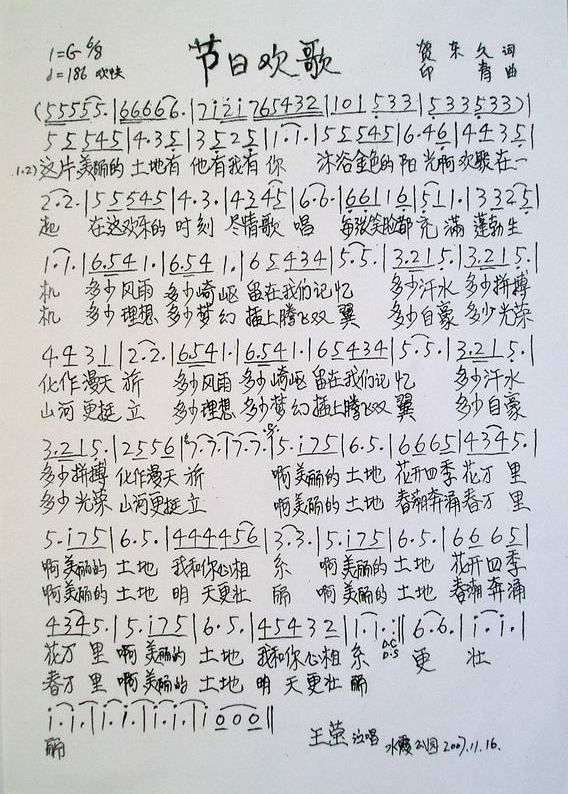 节日欢歌
1=G 6/8 贺东久 词
♩=186 欢快 印青 曲
(55555.|66666.|7i2i 765432|101 533|533533)|
55545|4·35|3525|1·1·|55545|6·46|4435|
1.2)这片美丽的 土地有 他有我有 你 沐浴金色的 阳 光啊 欢聚在一
2·2·|55545|4·3·|4345|6·6·|66116|51·|3325|
起 在这欢乐的 时刻 尽情歌 唱 每张笑脸都 充 满 蓬勃生
1·1·|6.541·|6.541·|65434|5·5·|3.215·|3.215·|
机 多少风雨 多少崎岖 留在我们记忆 多少汗水 多少拼搏
机 多少理想 多少梦幻 插上腾飞双 翼 多少自豪 多少光荣
4431|2·2·|6541·|6.541·|65434|5·5·|3.215·|
化作漫天 旂 多少风雨 多少崎岖 留在我们记 忆 多少汗水
山河更挺 立 多少理想 多少梦幻 插上腾飞双 翼 多少自豪
3.215·|2556|7·7·|7·7·|5·i75|6·5·|6665|4345·|
多少拼搏 化作漫天 旂 啊美丽的 土地 花开四季 花万 里
多少光荣 山河更挺 立 啊美丽的 土地 春潮奔涌 春万 里
5·i75|6·5·|444456|3·3·|5·i75|6·5·|6665|
啊美丽的 土地 我和你心相 系 啊美丽的 土地 花开四季
啊美丽的 土地 明 天更壮 丽 啊美丽的 土地 春潮奔涌
4345·|5·i75|6·5·|45432|1·1·:‖6·6·|i·i·|
花万 里 啊 美丽的 土地 我和你心相 系 D.C D.S 更 壮
春万 里 啊 美丽的 土地 明 天更壮 丽
i·i·|i·i·|i·i·|i·i·|i000‖
丽 王莹 演唱 水霞 2007.11.16.